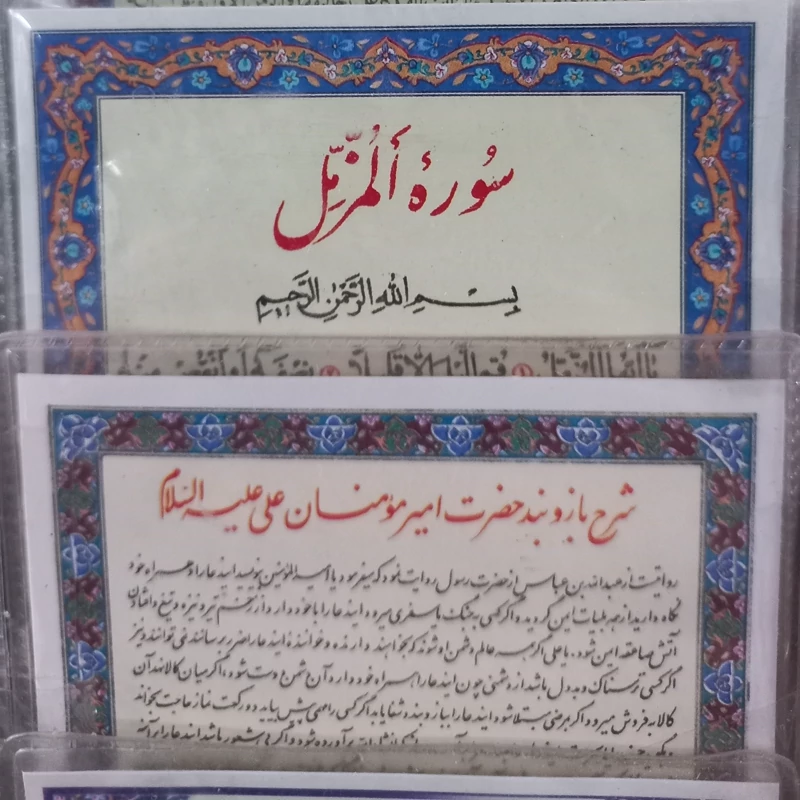 سُورهٔ اَلمُزَّمِّل
بِسْمِ اللهِ الرَّحْمٰنِ الرَّحِیمِ
شرح بازوبند حضرت امیر مؤمنان علی علیه السّلام
روایتست از عبدالله بن عباس از حضرت رسول روایت نمود که میفرمود یا امیرالمؤمنین بنویسید ایندعا را و همراه خود
نگاه دارید از جمیع بلیات ایمن گردید و اگر کسی بجنگ یا سفری میرود ایندعا را با خود دارد از زخم تیر و نیزه و تیغ و افتادن
آتش صاعقه ایمن شود. یا علی اگر همه عالم دشمن او شوند که بخوابند دارنده و خوانندهٔ ایندعا را ضرر برسانند نمی توانند و نیز
اگر کسی ترسناک و بددل باشد از دشمنی چون ایندعا را همراه خود دارد آن دشمن دوست شود، اگر میان کالا نهد آن
کالا به فروش میرود و اگر بمرضی مبتلا شود ایندعا را ببازو بندد شفا یابد اگر کسی را مهمی پیش بیاید دو رکعت نماز حاجت بخواند